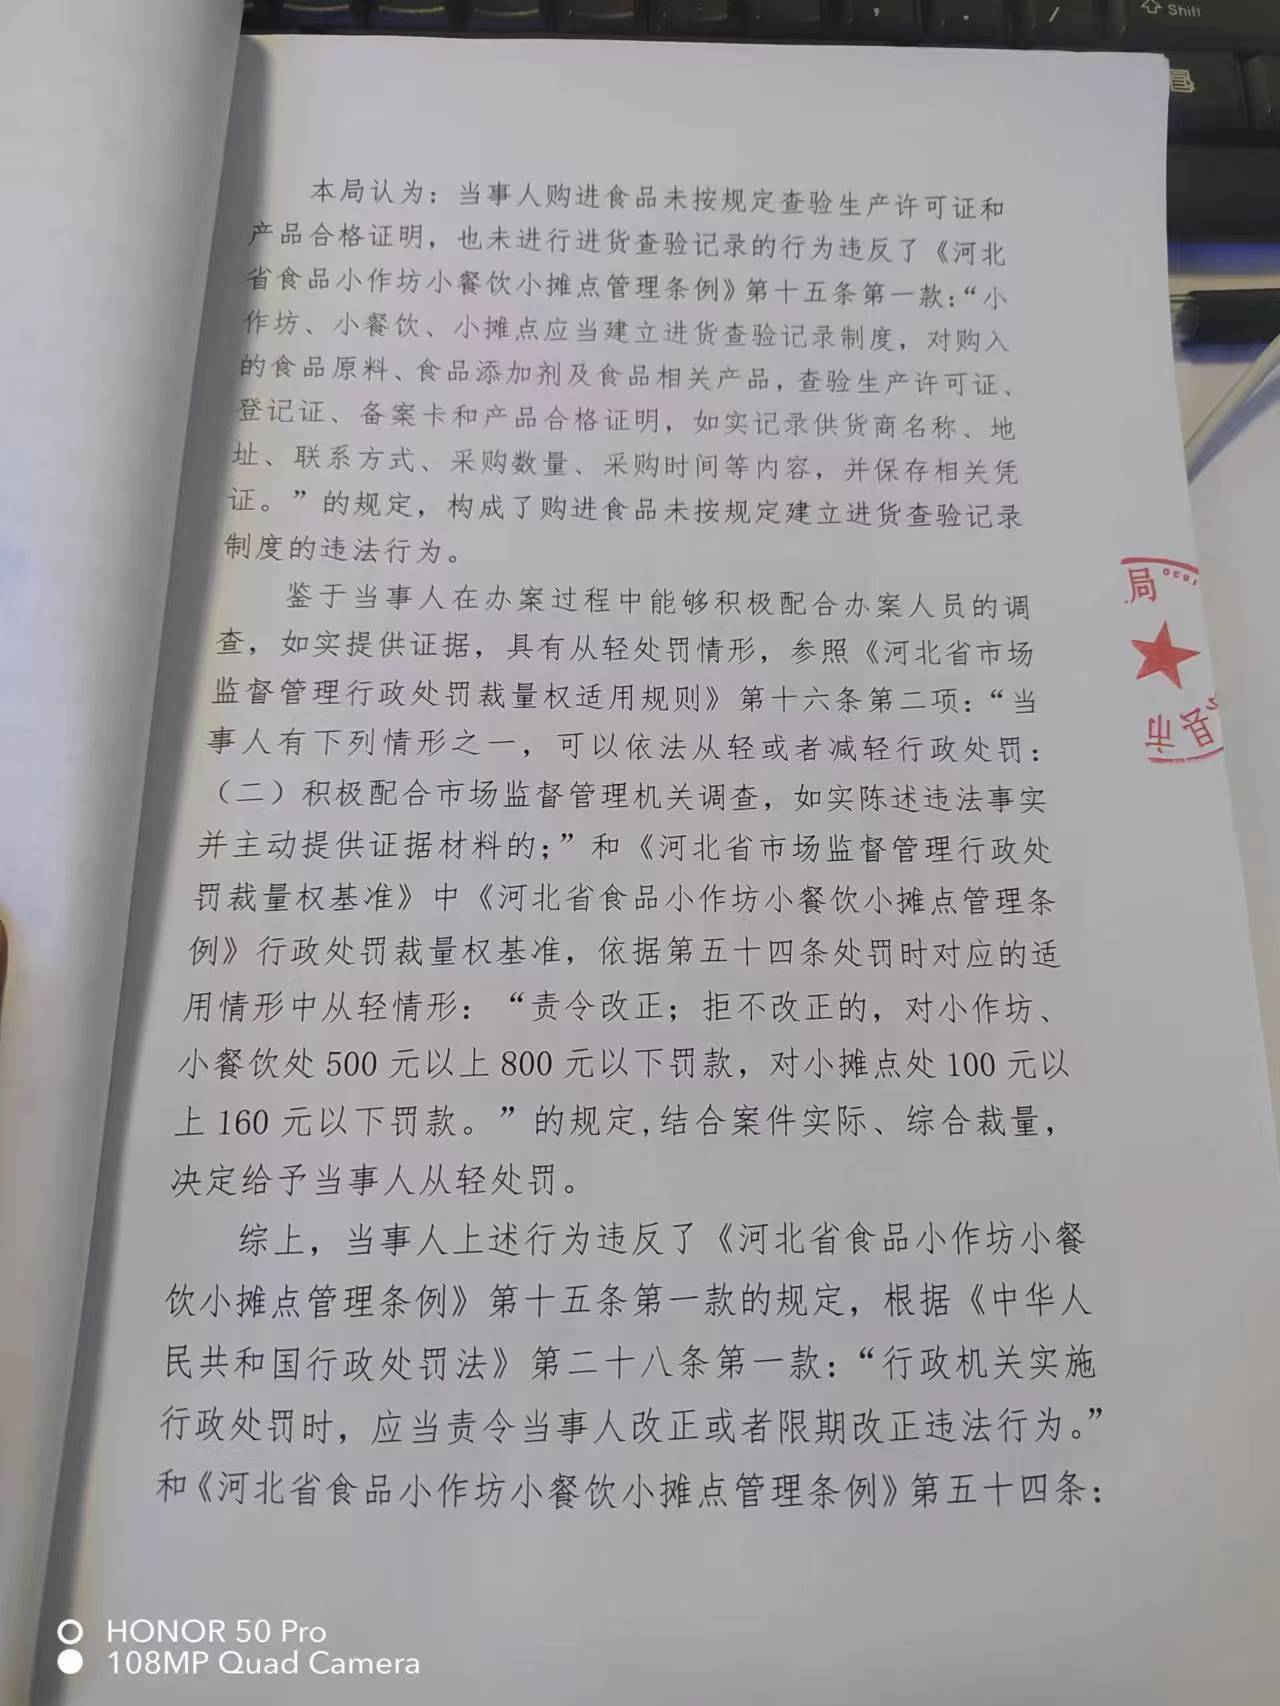 Shift
本局认为：当事人购进食品未按规定查验生产许可证和
产品合格证明，也未进行进货查验记录的行为违反了《河北
省食品小作坊小餐饮小摊点管理条例》第十五条第一款：“小
作坊、小餐饮、小摊点应当建立进货查验记录制度，对购入
的食品原料、食品添加剂及食品相关产品，查验生产许可证、
登记证、备案卡和产品合格证明，如实记录供货商名称、地
址、联系方式、采购数量、采购时间等内容，并保存相关凭
证。”的规定，构成了购进食品未按规定建立进货查验记录
制度的违法行为。
鉴于当事人在办案过程中能够积极配合办案人员的调
查，如实提供证据，具有从轻处罚情形，参照《河北省市场
监督管理行政处罚裁量权适用规则》第十六条第二项：“当
事人有下列情形之一，可以依法从轻或者减轻行政处罚：
（二）积极配合市场监督管理机关调查，如实陈述违法事实
并主动提供证据材料的；”和《河北省市场监督管理行政处
罚裁量权基准》中《河北省食品小作坊小餐饮小摊点管理条
例》行政处罚裁量权基准，依据第五十四条处罚时对应的适
用情形中从轻情形：“责令改正；拒不改正的，对小作坊、
小餐饮处 500 元以上 800 元以下罚款，对小摊点处 100 元以
上 160 元以下罚款。”的规定,结合案件实际、综合裁量，
决定给予当事人从轻处罚。
综上，当事人上述行为违反了《河北省食品小作坊小餐
饮小摊点管理条例》第十五条第一款的规定，根据《中华人
民共和国行政处罚法》第二十八条第一款：“行政机关实施
行政处罚时，应当责令当事人改正或者限期改正违法行为。”
和《河北省食品小作坊小餐饮小摊点管理条例》第五十四条：
局
县市
HONOR 50 Pro
108MP Quad Camera